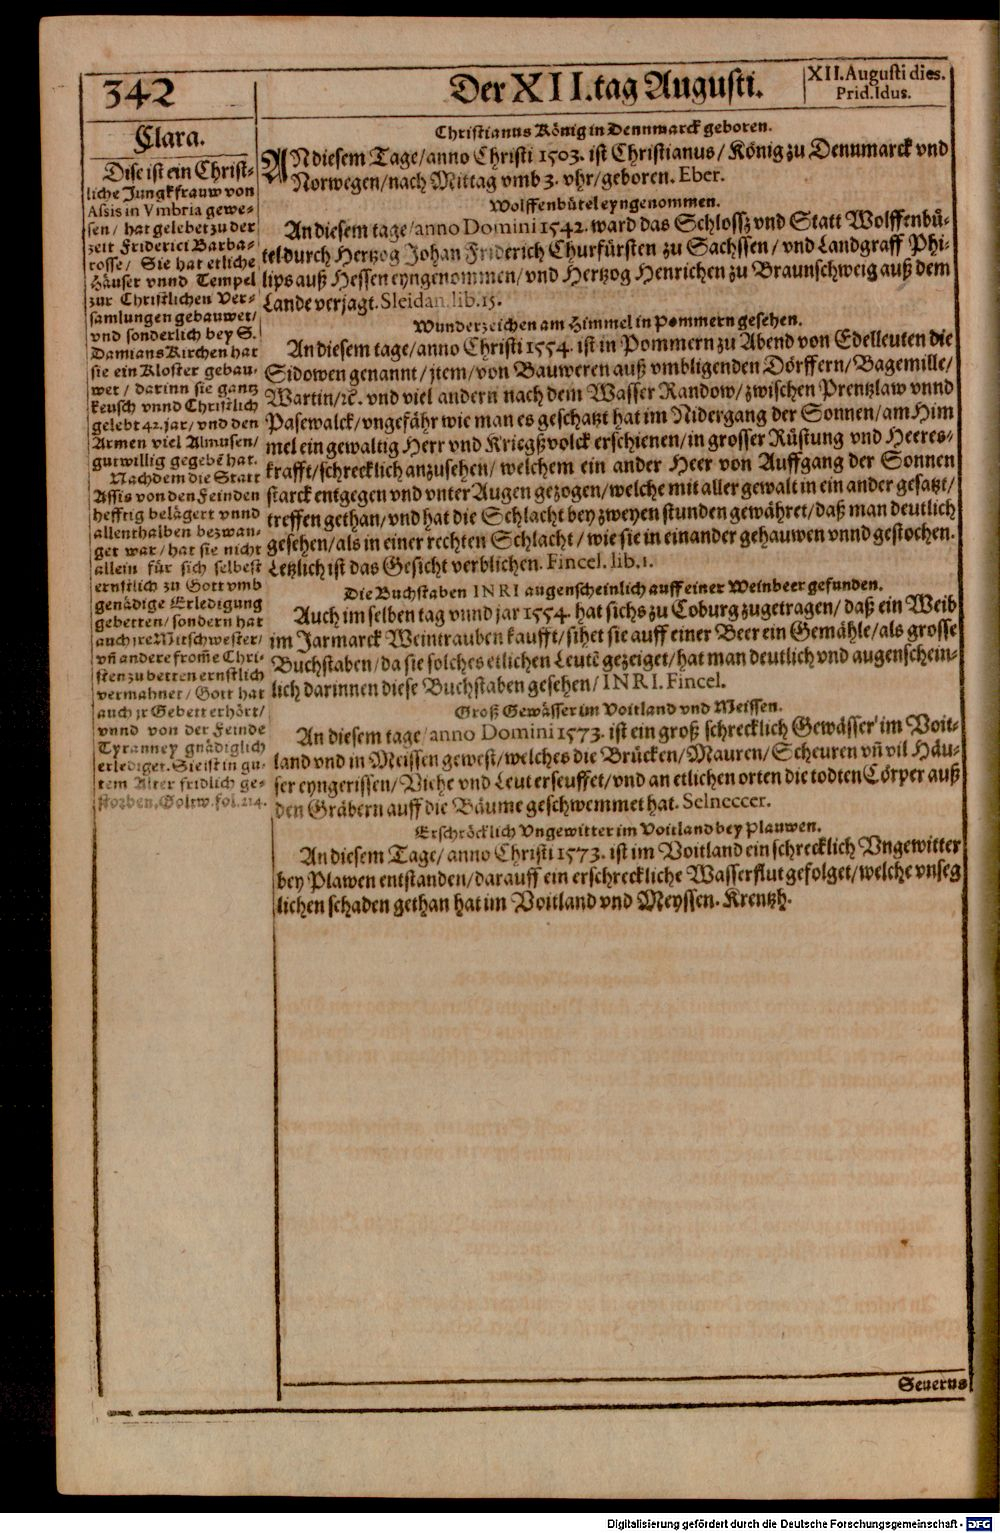 342
Der XII. tag Augusti.
XII. Augusti dies.
Prid. Idus.
Clara.
Dise ist ein Christ⸗
liche Jungkfrauw von
Assis in Vmbria gewe⸗
sen / hat gelebet zu der
zeit Friderici Barba⸗
rosse / Sie hat etliche
Häuser vnnd Tempel
zur Christlichen Ver⸗
samlungen gebauwet /
vnd sonderlich bey S.
Damians Kirchen hat
sie ein Kloster gebau⸗
wet / darinn sie gantz
keusch vnnd Christlich
gelebt 42. jar / vnd den
Armen viel Almusen /
gutwillig gegebē hat.
Nachdem die Statt
Assis von den Feinden
hefftig belägert vnnd
allenthalben bezwan⸗
get war / hat sie nicht
allein für sich selbest
ernstlich zu Gott vmb
genädige Erledigung
gebetten / sondern hat
auch jre Mitschwester /
vñ andere from̄e Chri⸗
sten zu betten ernstlich
vermahnet / Gott hat
auch jr Gebett erhört /
vnnd von der Feinde
Tyranney gnädiglich
erlediget. Sie ist in gu⸗
tem Alter fridlich ge⸗
storben, Goltw. fol. 214.
Christianus König in Dennmarck geboren.
AN diesem Tage / anno Christi 1503. ist Christianus / König zu Dennmarck vnd
Norwegen / nach Mittag vmb 3. vhr / geboren. Eber.
Wolffenbütel eyngenommen.
An diesem tage / anno Domini 1542. ward das Schlossz vnd Statt Wolffenbü⸗
tel durch Hertzog Johan Friderich Churfürsten zu Sachssen / vnd Landgraff Phi⸗
lips auß Hessen eyngenommen / vnd Hertzog Henrichen zu Braunschweig auß dem
Lande verjagt. Sleidan. lib. 15.
Wunderzeichen am Himmel in Pommern gesehen.
An diesem tage / anno Christi 1554. ist in Pommern zu Abend von Edelleuten die
Sidowen genannt / jtem / von Bauweren auß vmbligenden Dörffern / Bagemille /
Wartin / ꝛc. vnd viel andern nach dem Wasser Randow / zwischen Prentzlaw vnnd
Pasewalck / vngefähr wie man es geschatzt hat im Nidergang der Sonnen / am Him
mel ein gewaltig Herr vnd Kriegßvolck erschienen / in grosser Rüstung vnd Heeres⸗
krafft / schrecklich anzusehen / welchem ein ander Heer von Auffgang der Sonnen
starck entgegen vnd vnter Augen gezogen / welche mit aller gewalt in ein ander gesatzt /
treffen gethan / vnd hat die Schlacht bey zweyen stunden gewähret / daß man deutlich
gesehen / als in einer rechten Schlacht / wie sie in einander gehauwen vnnd gestochen.
Letzlich ist das Gesicht verblichen. Fincel. lib. 1.
Die Buchstaben INRI augenscheinlich auff einer Weinbeer gefunden.
Auch im selben tag vnnd jar 1554. hat sichs zu Coburg zugetragen / daß ein Weib
im Jarmarck Weintrauben kaufft / sihet sie auff einer Beer ein Gemähle / als grosse
Buchstaben / da sie solches etlichen Leutē gezeiget / hat man deutlich vnd augenschein⸗
lich darinnen diese Buchstaben gesehen / INRI. Fincel.
Groß Gewässer im Voitland vnd Meissen.
An diesem tage / anno Domini 1573. ist ein groß schrecklich Gewässer im Voit⸗
land vnd in Meissen gewest / welches die Brücken / Mauren / Scheuren vñ vil Häu⸗
ser eyngerissen / Viehe vnd Leut erseuffet / vnd an etlichen orten die todten Cörper auß
den Gräbern auff die Bäume geschwemmet hat. Selneccer.
Erschröcklich Vngewitter im Voitland bey Plauwen.
An diesem Tage / anno Christi 1573. ist im Voitland ein schrecklich Vngewitter
bey Plawen entstanden / darauff ein erschreckliche Wasserflut gefolget / welche vnseg
lichen schaden gethan hat im Voitland vnd Meyssen. Krentzh.
Seuerus
Digitalisierung gefördert durch die Deutsche Forschungsgemeinschaft - DFG